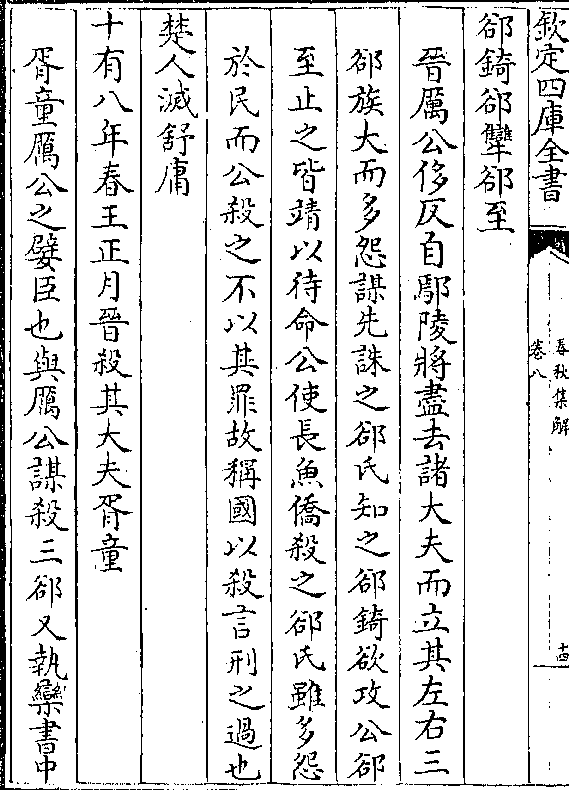 欽定四庫全書
春秋集解
卷八
十四
郤錡郤犫郤至
晉厲公侈反自鄢陵將盡去諸大夫而立其左右三
郤族大而多怨謀先誅之郤氏知之郤錡欲攻公郤
至止之皆靖以待命公使長魚僑殺之郤氏雖多怨
於民而公殺之不以其罪故稱國以殺言刑之過也
楚人滅舒庸
十有八年春王正月晉殺其大夫胥童
胥童厲公之嬖臣也與厲公謀殺三郤又執欒書中